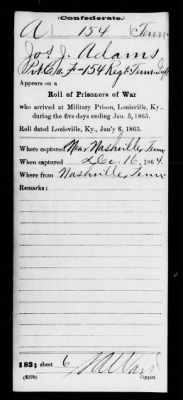 Confederate.
A 154 Tenn
Jos J. Adams
Pvt Co. F-154 Reg't Tenn Inf
Appears on a
Roll of Prisoners of War
who arrived at Military Prison, Louisville, Ky.,
during the five days ending Jan. 5, 1865.
Roll dated Louisville, Ky., Jan'y 6, 1865.
Where captured Near Nashville, Tenn
When captured Dec. 16, 1864.
Where from Nashville, Tenn
Remarks:
1831 sheet 6
(639b) Copyist